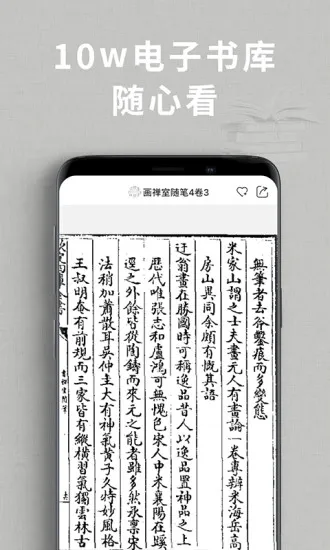 10w电子书库
随心看
画禅室随笔4卷3
無筆者去谷鑿痕而多變態
米家山謂之士夫畫元人有畫論一卷專辨米海岳高
房山異同余頗有慨其語
迂翁畫在勝國時可稱逸品昔人以逸品置神品之上
歷代唯張志和盧鴻可無愧色宋人中米襄陽在蹊
逕之外餘皆從陶鑄而來元之能者雖多然承稟宋
法稍加蕭散耳吳仲圭大有神氣黃子久特妙風格
王叔明奄有前規而三家皆有縱橫習氣獨雲林古